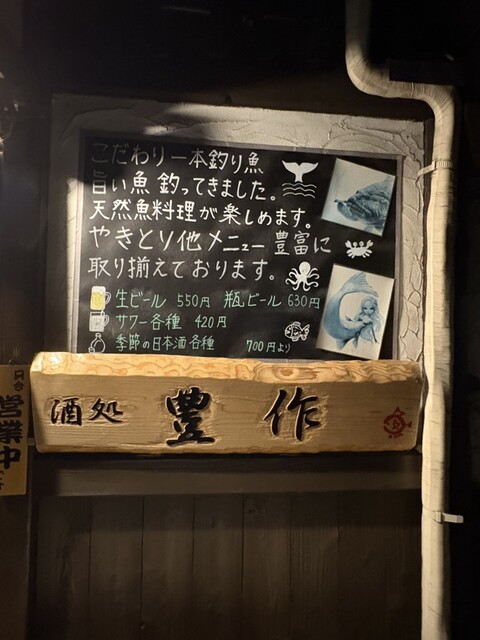 こだわり一本釣り魚
旨い魚 釣ってきました。
天然魚料理が楽しめます。
やきとり他メニュー豊富に
取り揃えております。
生ビール 550円 瓶ビール 630円
サワー各種 420円
季節の日本酒各種 700円より
酒処 豊作
営業中